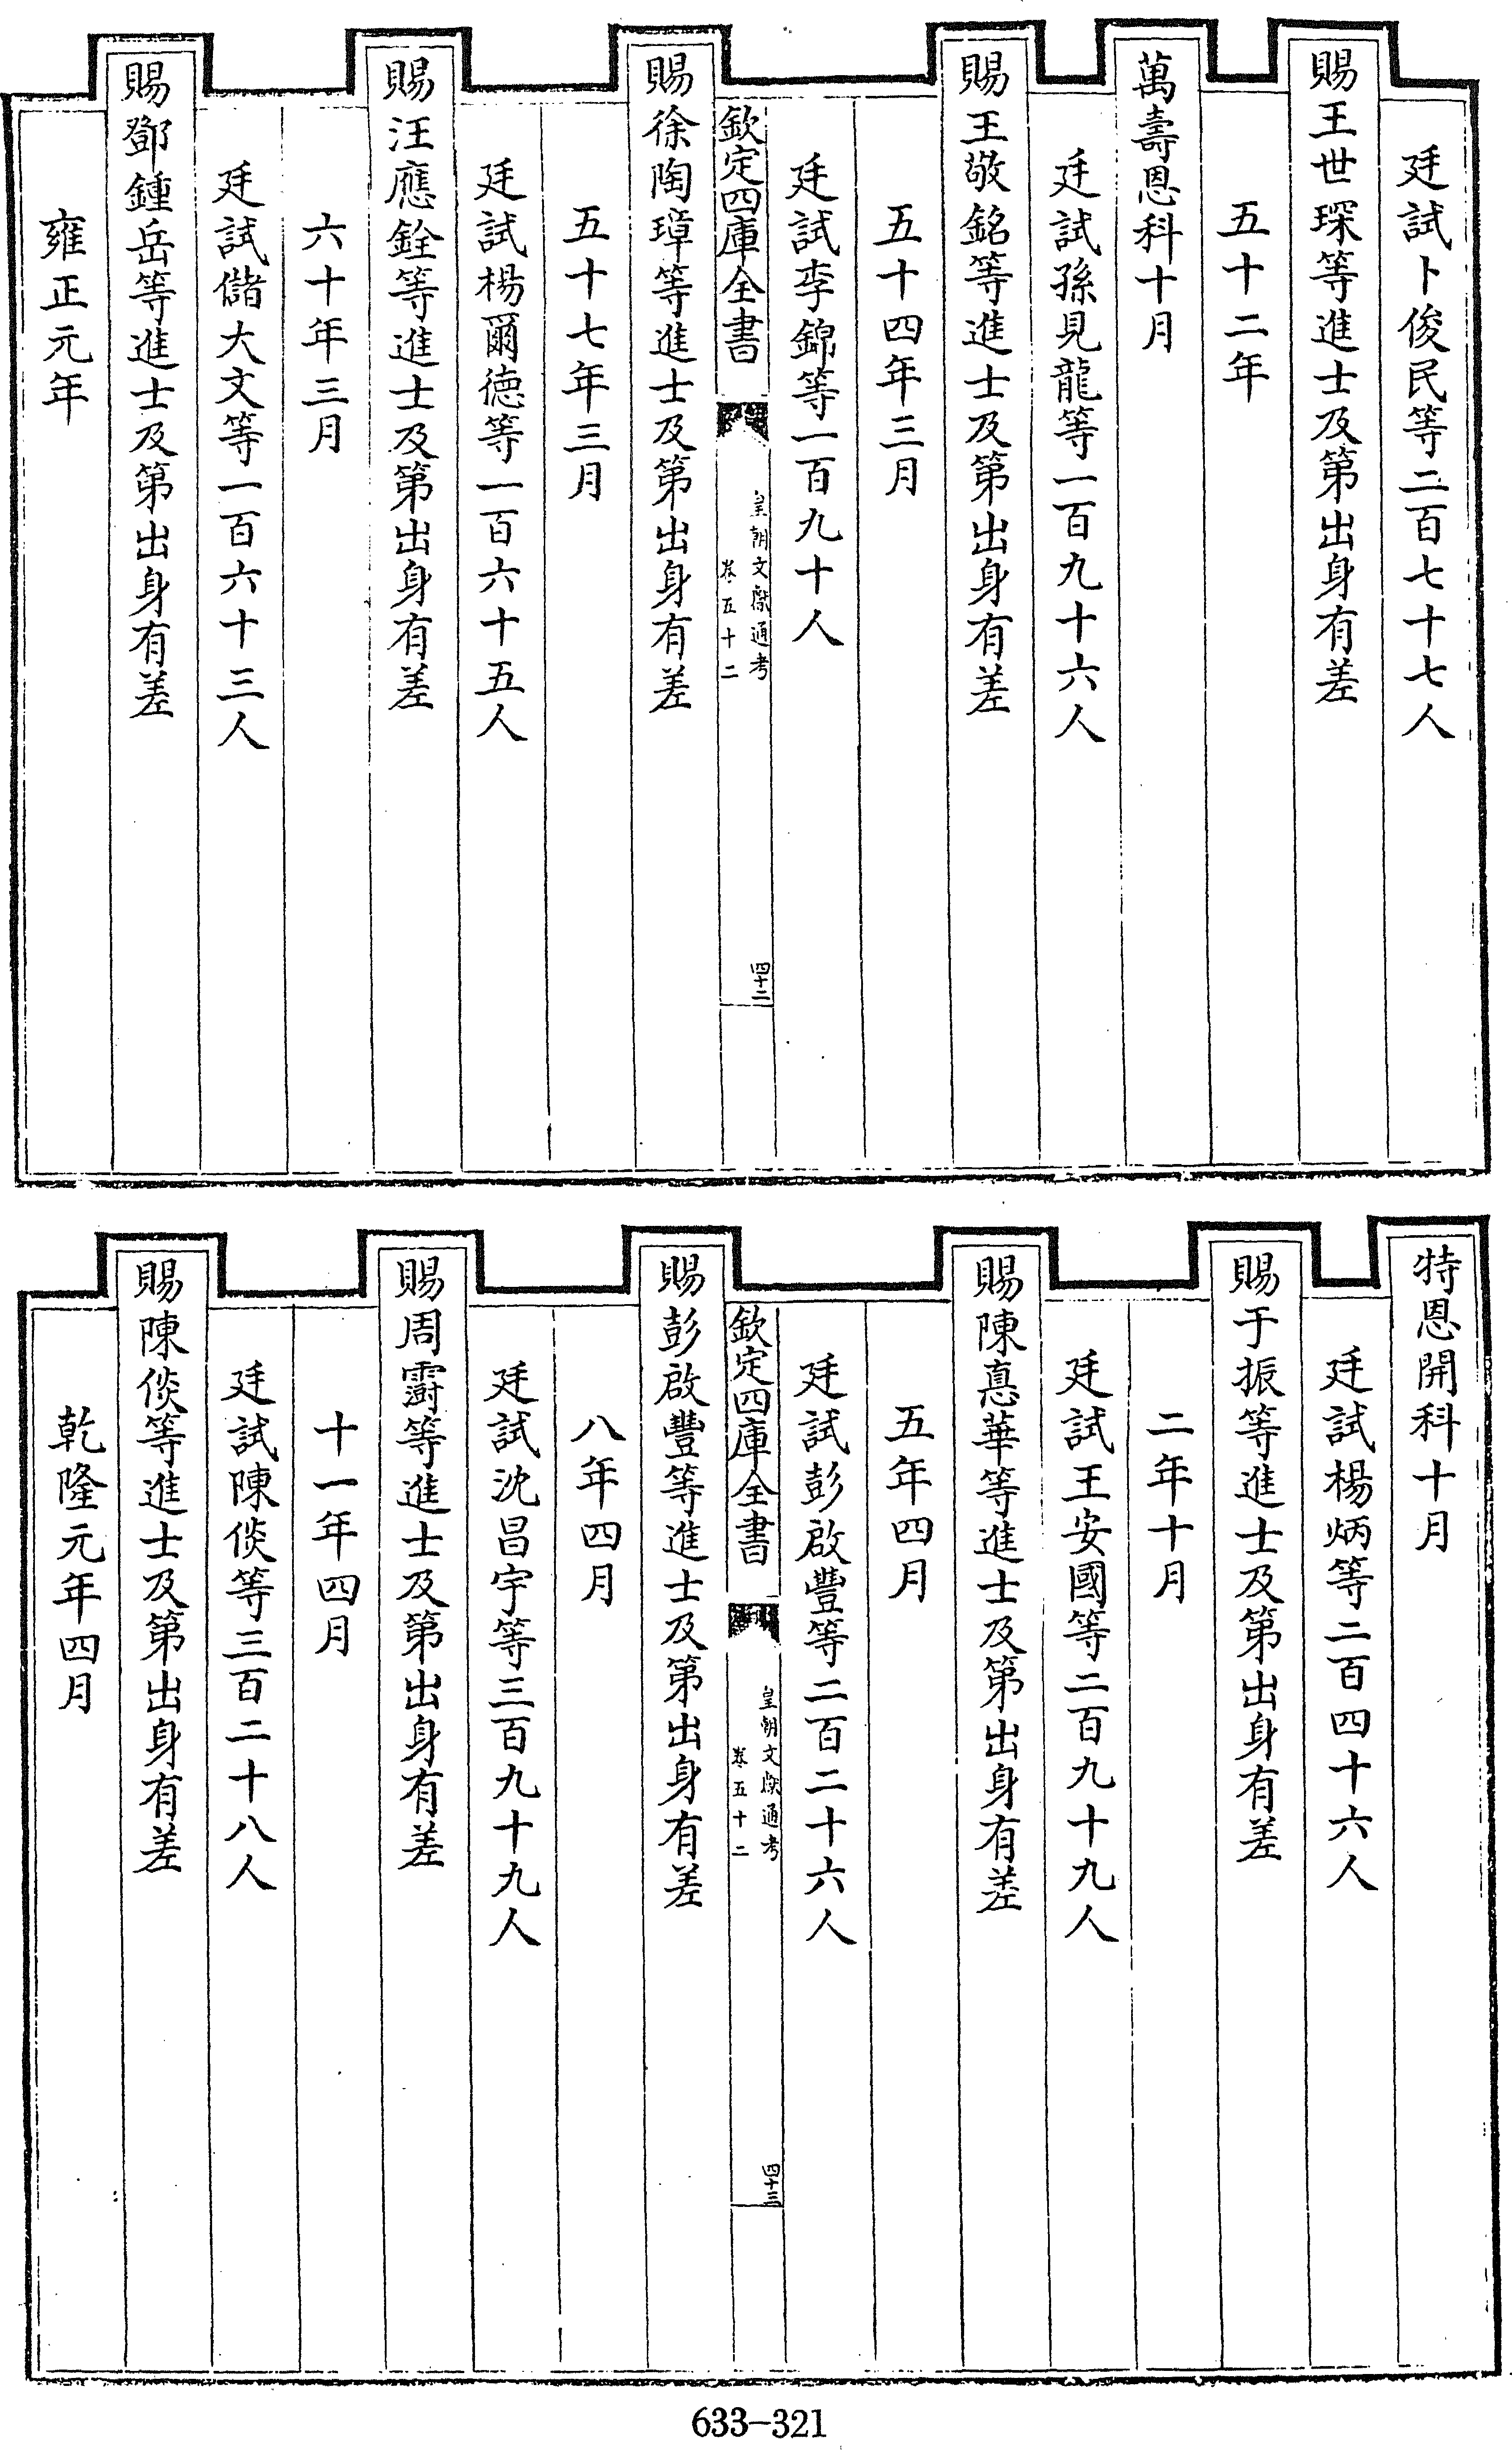 廷試卜俊民等二百七十七人
賜王世琛等進士及第出身有差
五十二年
萬壽恩科十月
廷試孫見龍等一百九十六人
賜王敬銘等進士及第出身有差
五十四年三月
廷試李錦等一百九十人
欽定四庫全書
皇朝文獻通考
卷五十二
四十二
賜徐陶璋等進士及第出身有差
五十七年三月
廷試楊爾德等一百六十五人
賜汪應銓等進士及第出身有差
六十年三月
廷試儲大文等一百六十三人
賜鄧鍾岳等進士及第出身有差
雍正元年
特恩開科十月
廷試楊炳等二百四十六人
賜于振等進士及第出身有差
二年十月
廷試王安國等二百九十九人
賜陳悳華等進士及第出身有差
五年四月
廷試彭啟豐等二百二十六人
欽定四庫全書
皇朝文獻通考
卷五十二
四十三
賜彭啟豐等進士及第出身有差
八年四月
廷試沈昌宇等三百九十九人
賜周霨等進士及第出身有差
十一年四月
廷試陳倓等三百二十八人
賜陳倓等進士及第出身有差
乾隆元年四月
633-321